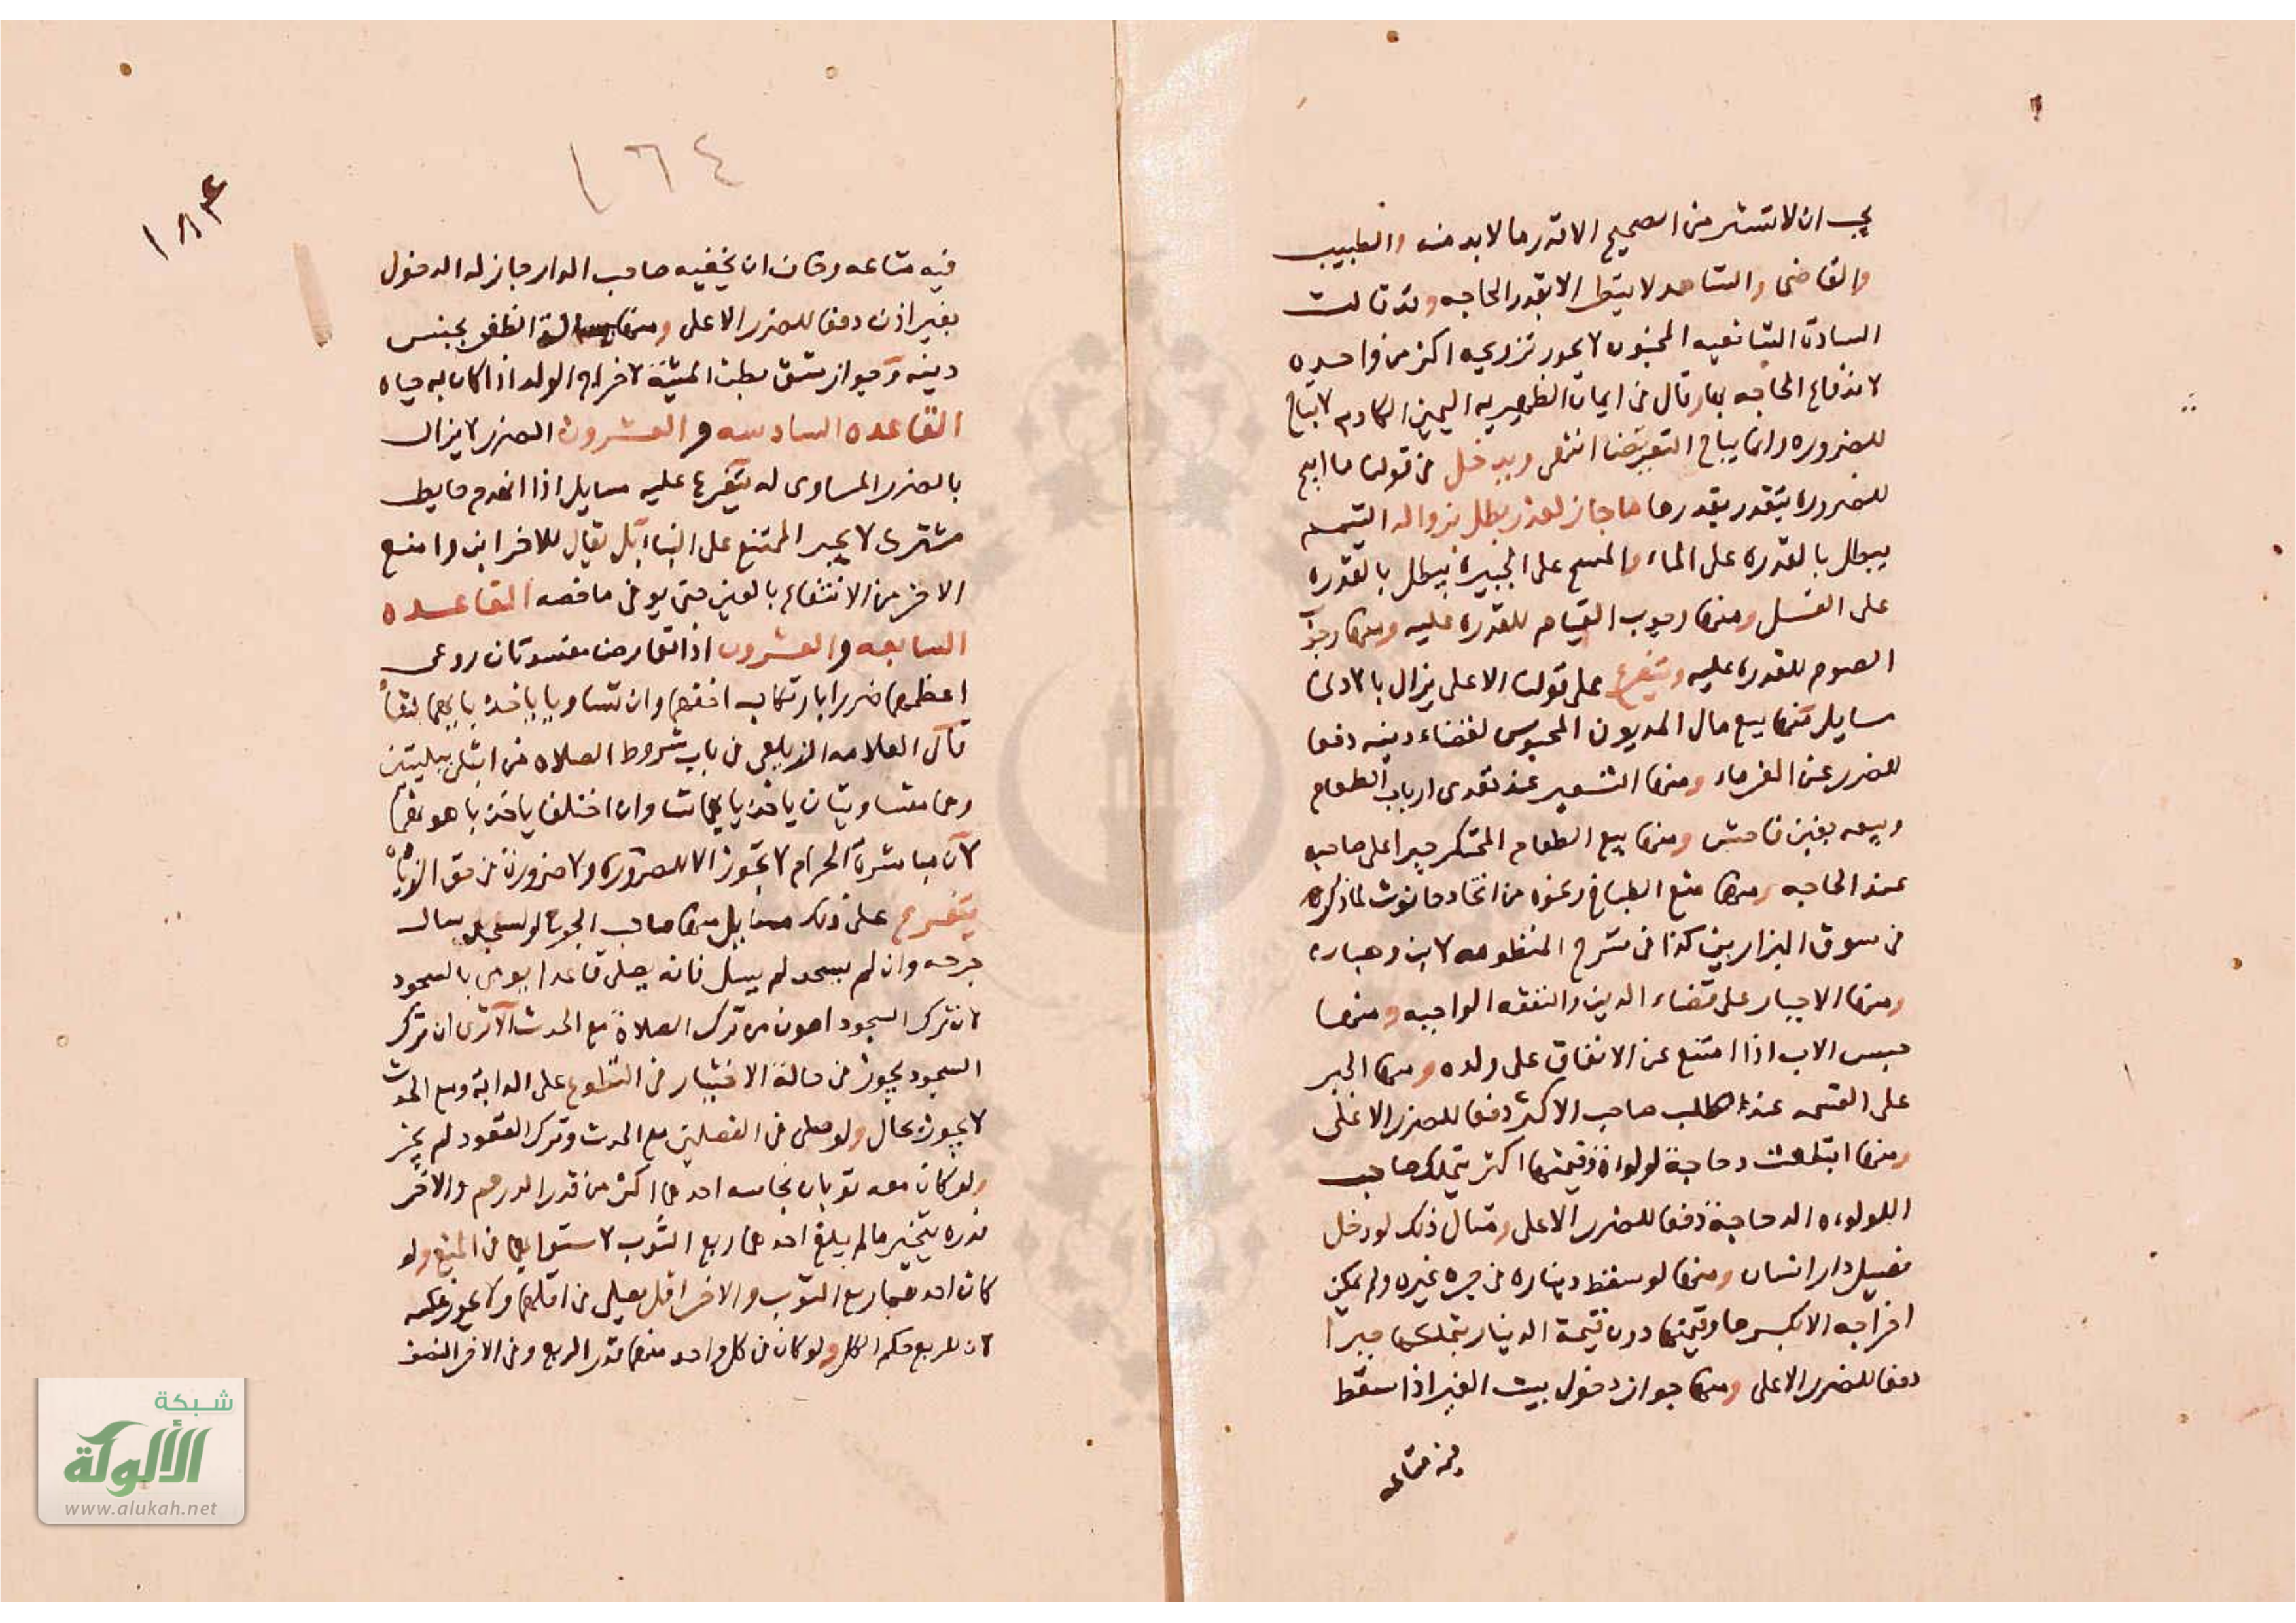 يجب ان لا تستر من الصحيح الا قدر ما لا بد منه والطبيب
والقاضى والشاهد لا ينظر الا بقدر الحاجه وقد قالت
الساده الشافعيه المجنون لا يجوز تزويجه اكثر من واحده
لاندفاع الحاجه بها وقال فى ايمان الظهيريه اليمين الكاذبه لا تباح
للضروره وانما يباح التعريض انتهى ويدخل فى قولنا ما ابيح
للضروره يتقدر بقدرها ما جاز لعذر بطل بزواله التيمم
يبطل بالقدره على الماء والمسح على الجبيره يبطل بالقدره
على الغسل ومنها وجوب القيام للقدره عليه ومنها وجوب
الصوم للقدره عليه ويتفرع على قولنا الاعلى يزال بالادنى
مسايل منها بيع مال المديون المحبوس لقضاء دينه دفعا
للضرر عن الغرماء ومنها التسعير عند تعدى ارباب الطعام
وبيعه بغبن فاحش ومنها بيع الطعام المحتكر جبرا على صاحبه
عند الحاجه ومنها منع الطباخ ونحوه من اتخاذ حانوت
فى سوق البزازين كذا فى شرح المنظومه لابن وهبان
ومنها الاجبار على قضاء الدين والنفقه الواجبه ومنها
حبس الاب اذا امتنع عن الانفاق على ولده ومنها الجبر
على القسمه عند طلب صاحب الاكثر دفعا للضرر الاعلى
ومنها ابتلعت دجاجة لولوة وقيمتها اكثر يتملك صاحب
اللولوه الدجاجة دفعا للضرر الاعلى ومثال ذلك لو دخل
فصيل دار انسان ومنها لو سقط ديناره فى محبره غيره ولم يمكن
اخراجه الا بكسرها وقيمتها دون قيمة الدينار يتملكها جبرا
دفعا للضرر الاعلى ومنها جواز دخول بيت الغير اذا سقط
فيه متاعه
١٦٤
١٨٣
فيه متاعه وخاف ان يخفيه صاحب الدار جاز له الدخول
بغير اذن دفعا للضرر الاعلى ومنها مسالة الظفر بجنس
دينه وجواز شق بطن الميتة لاخراج الولد اذا كان به حياه
القاعده السادسه والعشرون الضرر لا يزال
بالضرر المساوى له يتفرع عليه مسايل اذا انهدم حايط
مشترك لا يجبر الممتنع على البنا بل يقال للاخر ابن وامنع
الاخر من الانتفاع بالعين حتى يوفى ما خصه القاعده
السابعه والعشرون اذا تعارض مفسدتان روعى
اعظمهما ضررا بارتكاب اخفهما وان تساويا ياخذ بايهما
قال العلامه الزيلعى فى باب شروط الصلاه من ابتلى ببليتين
وهما متساويتان ياخذ بايهما شا وان اختلفا ياخذ باهونهما
لان مباشرة الحرام لا تجوز الا للضرورة ولا ضرورة فى حق الزيادة
يتفرع على ذلك مسايل منها صاحب الجرح لو سجد سال
جرحه وان لم يسجد لم يسل فانه يصلى قاعدا يومى بالسجود
لان ترك السجود اهون من ترك الصلاة مع الحدث الا ترى ان ترك
السجود يجوز فى حالة الاختيار فى التطوع على الدابة ومع الحدث
لا يجوز بحال ولو صلى فى الفصلين مع الحدث وترك القعود لم يجز
ولو كان معه ثوبان نجاسه احدهما اكثر من قدر الدرهم والاخر
قدره يتخير ما لم يبلغ احدهما ربع الثوب لاستوايهما فى المنع ولو
كان احدهما ربع الثوب والاخر اقل يصلى فى اقلهما ولا يجوز عكسه
لان للربع حكم الكل ولو كان فى كل واحد منهما قدر الربع وفى الاخر النصف
شبكة
الألوكة
www.alukah.net